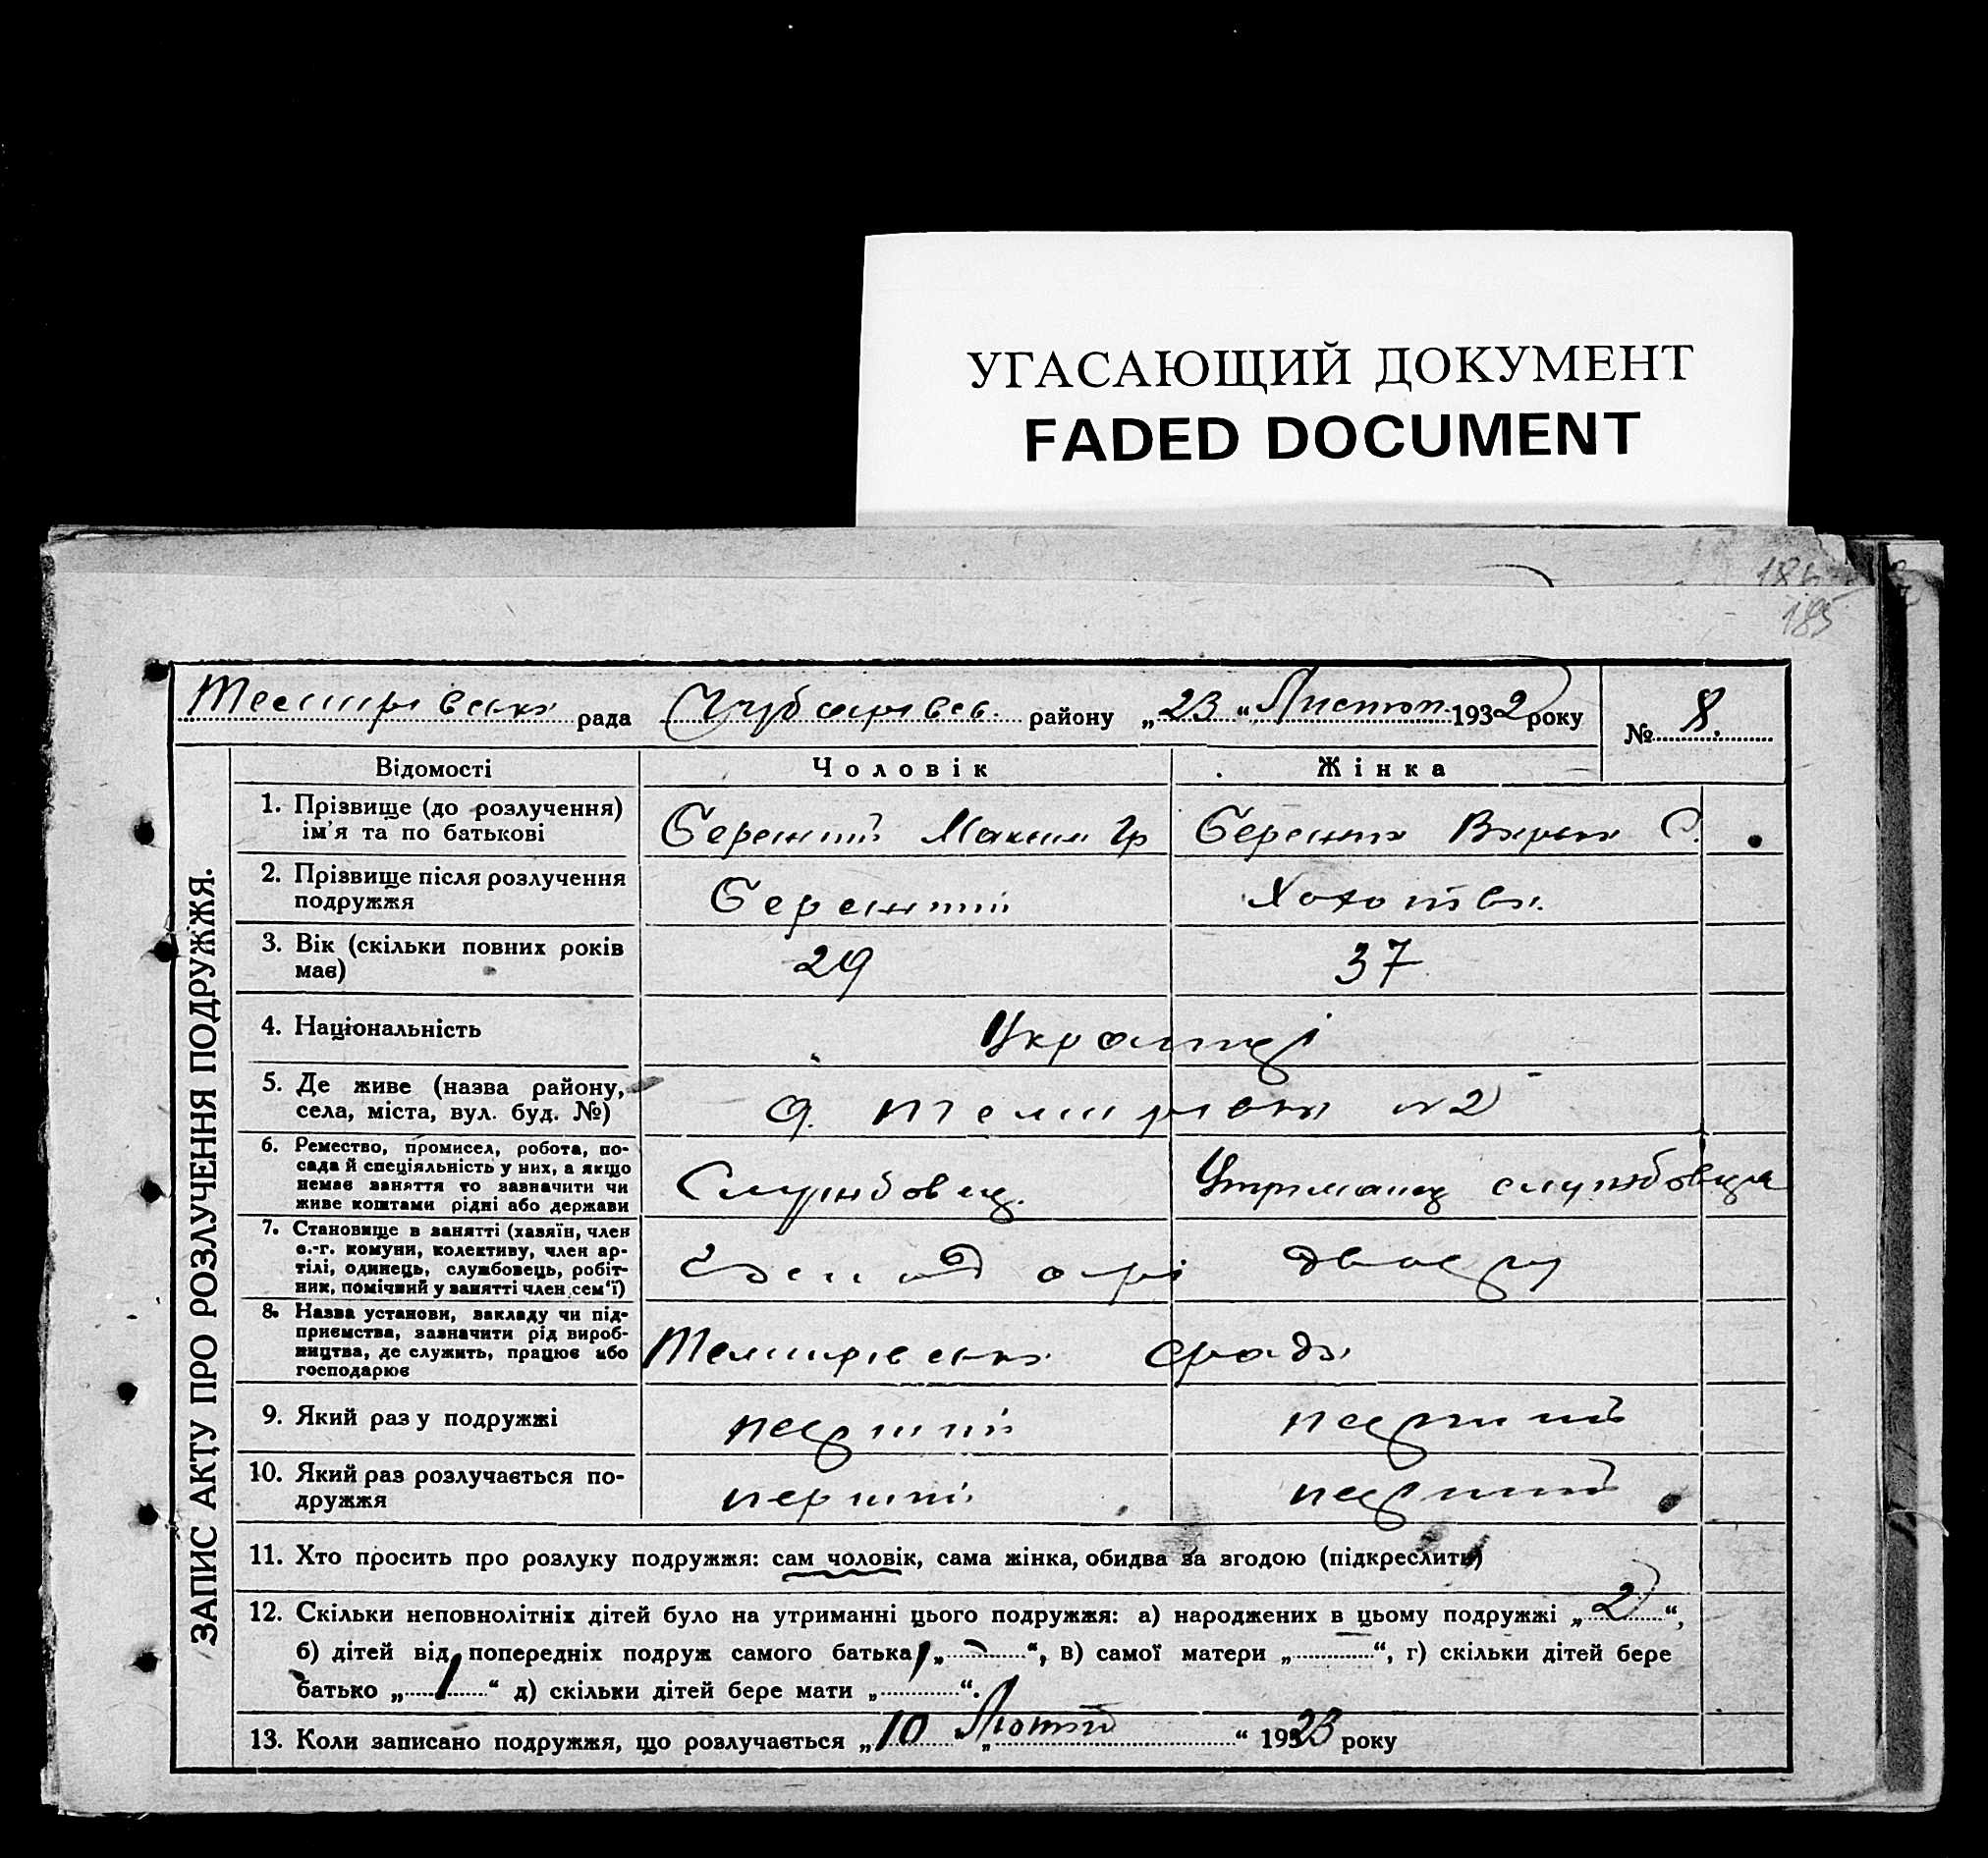 УГАСАЮЩИЙ ДОКУМЕНТ
FADED DOCUMENT
186
185
рада Чубарівськ. району „23“ Листоп. 1932 року
№ 8.
ЗАПИС АКТУ ПРО РОЗЛУЧЕННЯ ПОДРУЖЖЯ.
Відомості Чоловік Жінка
1. Прізвище (до розлучення)
ім'я та по батькові
Максим Гр С.
2. Прізвище після розлучення
подружжя
3. Вік (скільки повних років
має)
29 37
4. Національність
Українці
5. Де живе (назва району,
села, міста, вул. буд. №)
с. Темирівка №2
6. Ремество, промисел, робота, по-
сада й спеціяльність у них, а якщо
немає заняття то зазначити чи
живе коштами рідні або держави
Службовец. Утриманец службовця
7. Становище в занятті (хазяїн, член
с.-г. комуни, колективу, член ар-
тілі, одинець, службовець, робіт-
ник, помічний у занятті член сем'ї)
8. Назва установи, закладу чи під-
приємства, зазначити рід вироб-
ництва, де служить, працює або
господарює
Темирівська срада
9. Який раз у подружжі
перший перший
10. Який раз розлучається по-
дружжя
перший перший
11. Хто просить про розлуку подружжя: сам чоловік, сама жінка, обидва за згодою (підкреслити)
12. Скільки неповнолітніх дітей було на утриманні цього подружжя: а) народжених в цьому подружжі „2“,
б) дітей від попередніх подруж самого батька „ “, в) самої матери „ “, г) скільки дітей бере
батько „1“ д) скільки дітей бере мати „ “.
13. Коли записано подружжя, що розлучається „10“ Лютий “ 1923 року